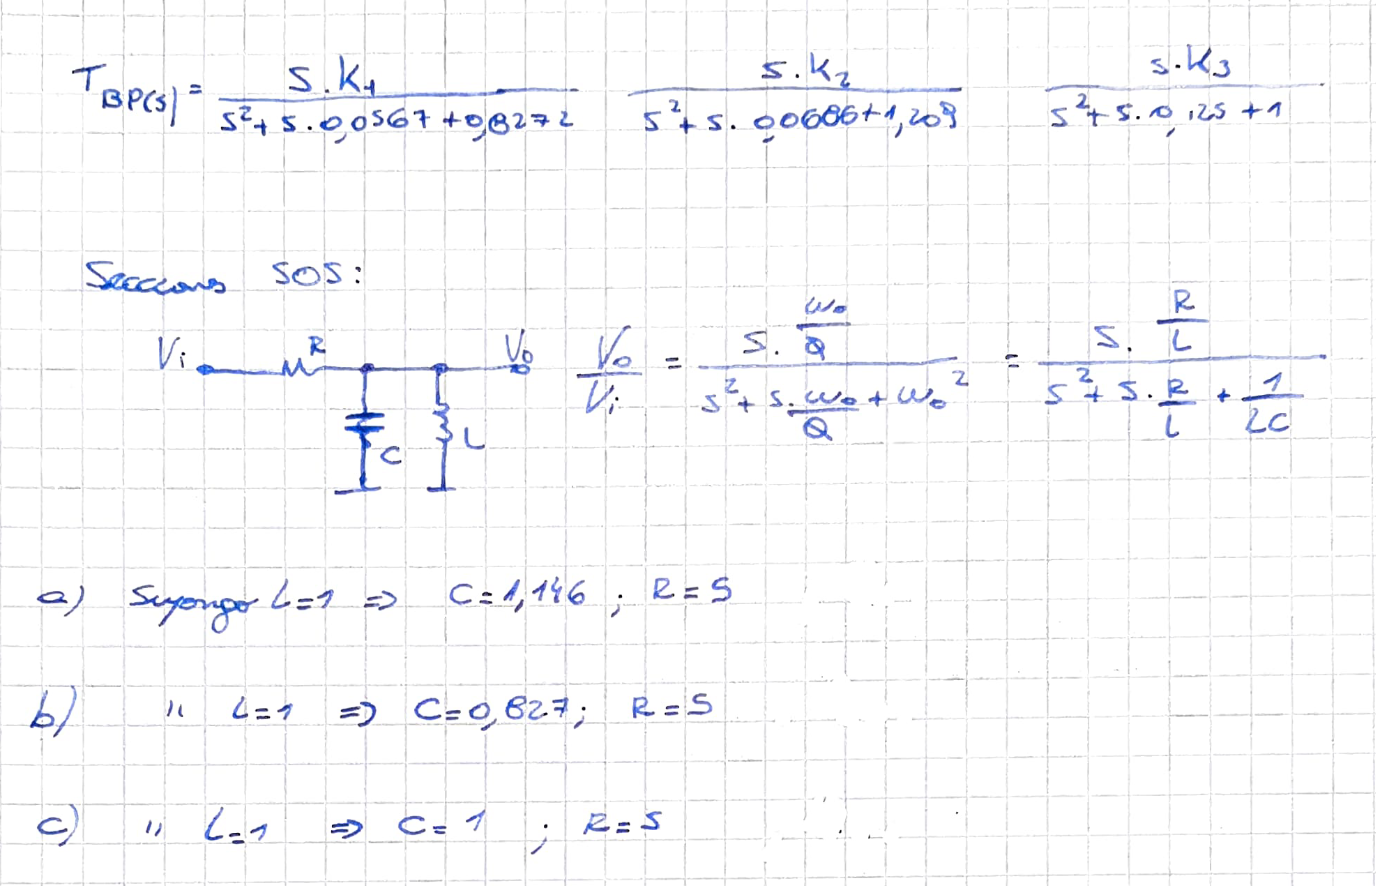 T_BP(s) = \frac{S.K_1}{S^2+S.0,0567+0,8272} \frac{S.K_2}{S^2+S.0,0686+1,209} \frac{S.K_3}{S^2+S.0,125+1}
Secciones SOS:
Vi R Vo C L \frac{Vo}{Vi} = \frac{S.\frac{ω_0}{Q}}{S^2+S.\frac{ω_0}{Q}+ω_0^2} = \frac{S.\frac{R}{L}}{S^2+S.\frac{R}{L}+\frac{1}{LC}}
a) Supongo L=1 => C=1,146 ; R=5
b) " L=1 => C=0,827; R=5
c) " L=1 => C=1 ; R=5